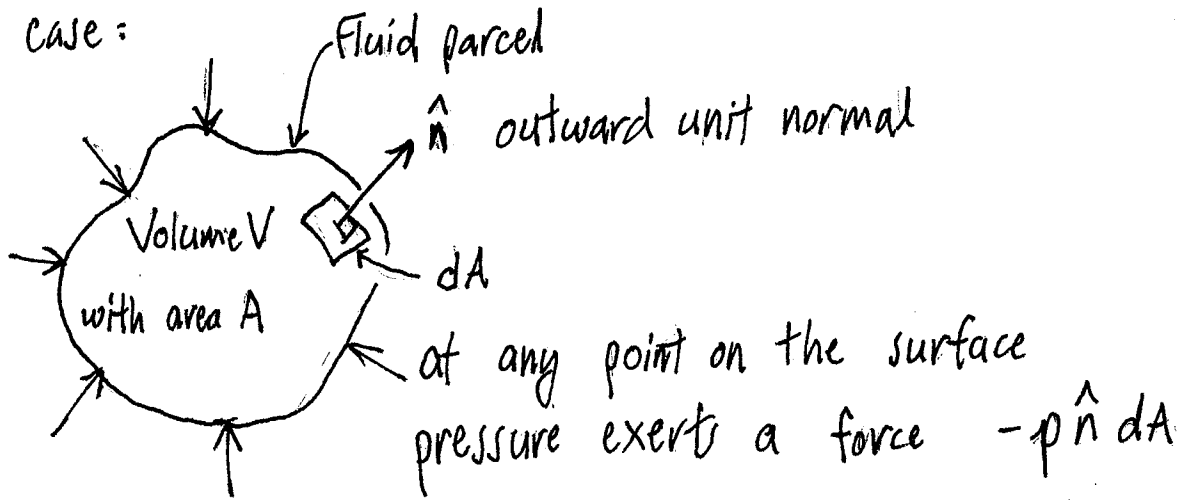 case :
Fluid parcel
n̂ outward unit normal
Volume V
dA
with area A
at any point on the surface
pressure exerts a force -p n̂ dA